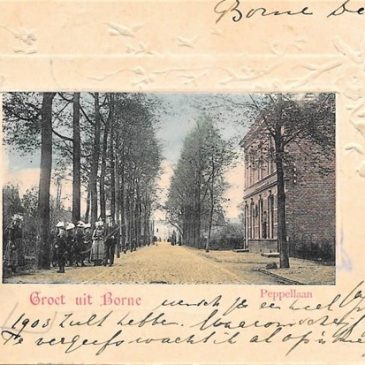 Borne De
Groet uit Borne
Peppellaan
wensch je een heel
1903 Zult hebben. Waarom
Te vergeefs wacht ik al op